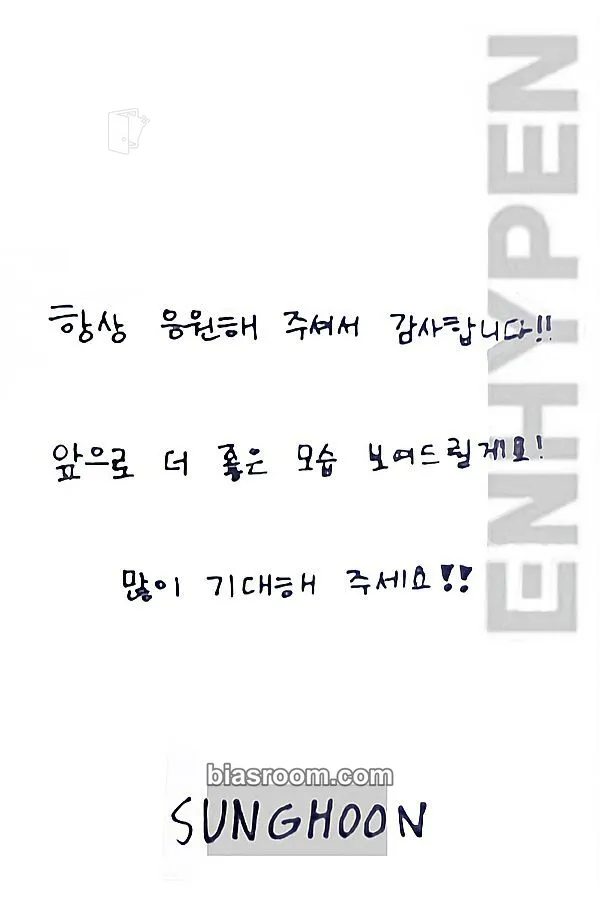 ENHYPEN
항상 응원해 주셔서 감사합니다!!
앞으로 더 좋은 모습 보여드릴게요!
많이 기대해 주세요!!
biasroom.com
SUNGHOON